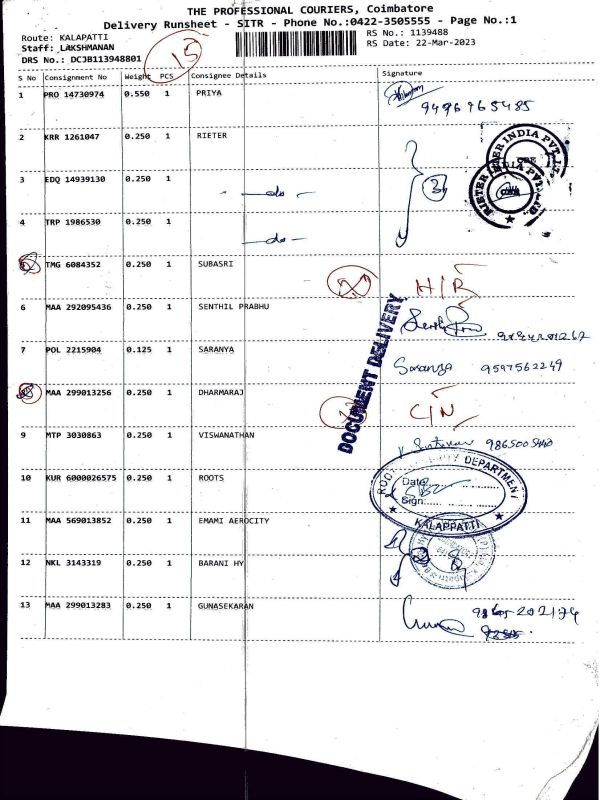 THE PROFESSIONAL COURIERS, Coimbatore
Delivery Runsheet - SITR - Phone No.:0422-3505555 - Page No.:1
Route: KALAPATTI
Staff: LAKSHMANAN
DRS No.: DCJB113948801
RS No.: 1139488
RS Date: 22-Mar-2023
S No Consignment No Weight PCS Consignee Details Signature
1 PRO 14730974 0.550 1 PRIYA
9496765485
2 KRR 1261047 0.250 1 RIETER
3 EDQ 14939130 0.250 1 -do-
4 TRP 1986530 0.250 1 -do-
3
RIETER INDIA PVT. LTD.
TMG 6084352 0.250 1 SUBASRI
H/R
6 MAA 292095436 0.250 1 SENTHIL PRABHU
7 POL 2215904 0.125 1 SARANYA Saranya 9597562249
DOCUMENT DELIVERY
MAA 299013256 0.250 1 DHARMARAJ C/N
9 MTP 3030863 0.250 1 VISWANATHAN
10 KUR 6000026575 0.250 1 ROOTS
DEPARTMENT
Date:
Sign:
KALAPPATTI
11 MAA 569013852 0.250 1 EMAMI AEROCITY
12 NKL 3143319 0.250 1 BARANI HY
13 MAA 299013283 0.250 1 GUNASEKARAN